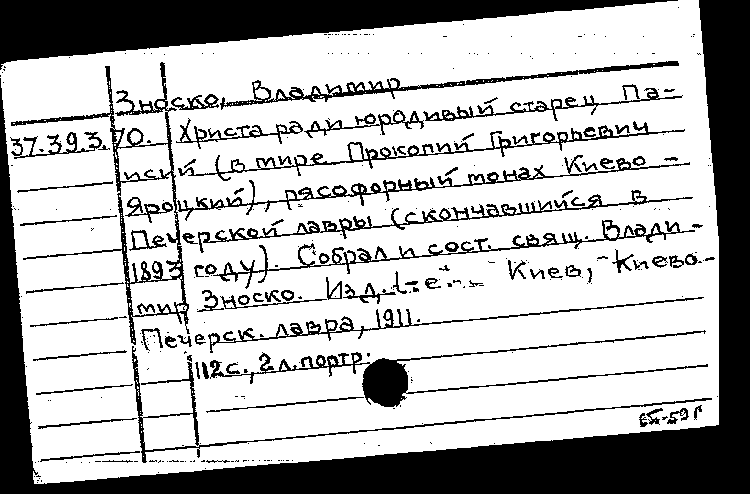 Зноско, Владимир
37.39.3.70. Христа ради юродивый старец Па-
исий (в мире Прокопий Григорьевич
Яроцкий), рясофорный монах Киево-
Печерской лавры (скончавшийся в
1893 году). Собрал и сост. свящ. Влади-
мир Зноско. Изд. 1-е. Киев, Киево-
Печерск. лавра, 1911.
112 с., 2 л. портр.